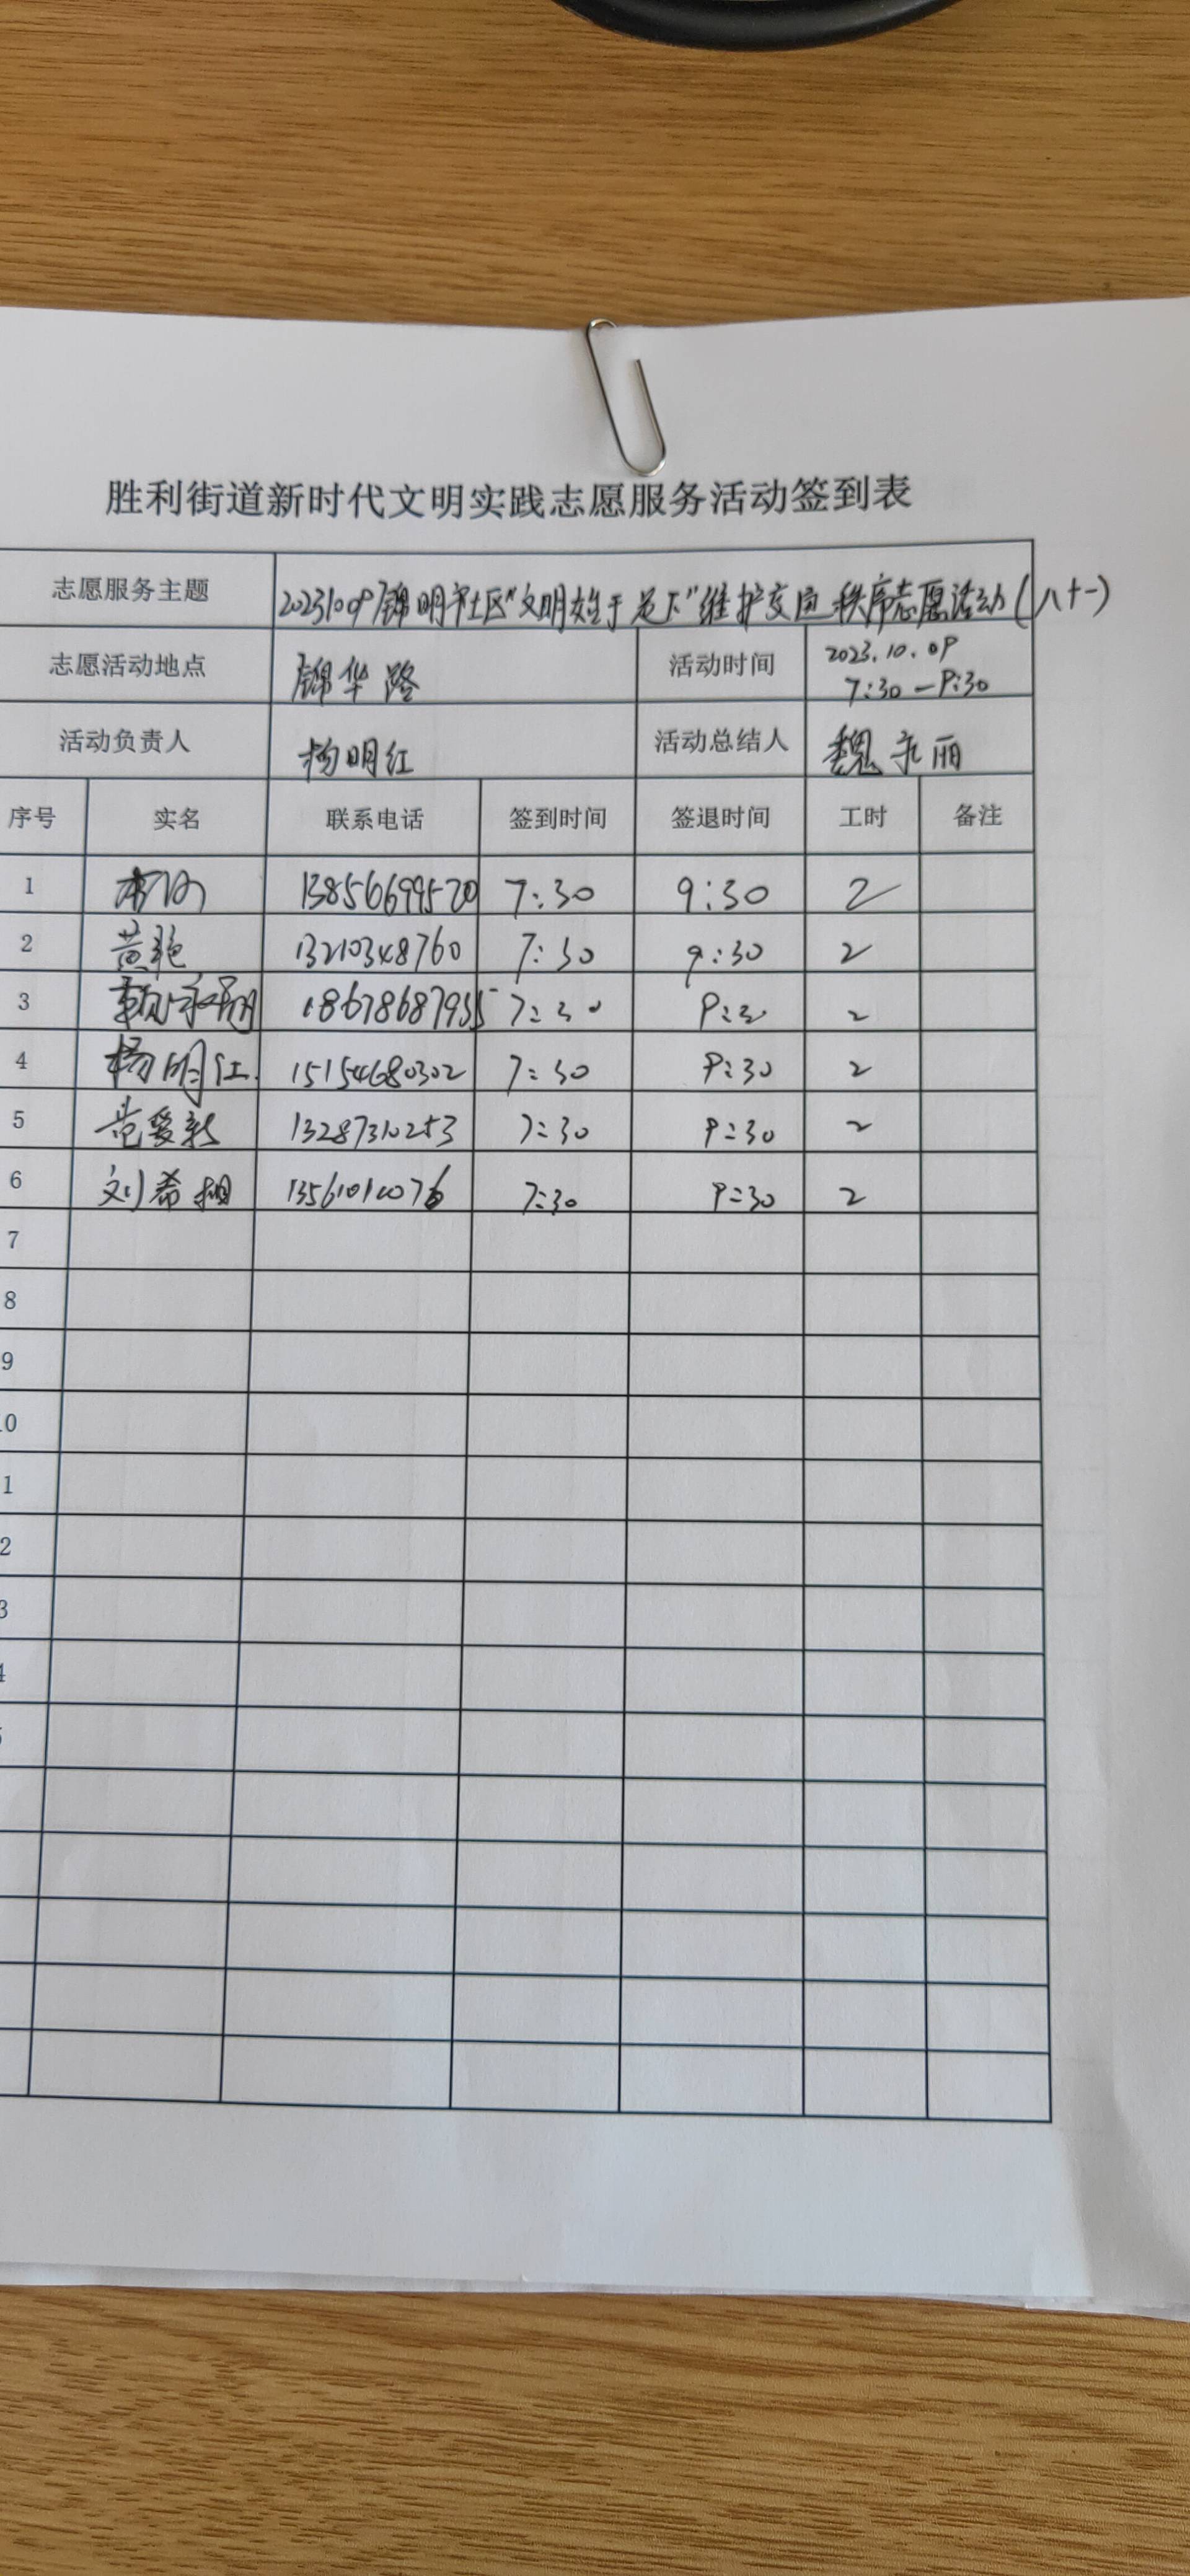 胜利街道新时代文明实践志愿服务活动签到表
志愿服务主题 20231009锦明社区"文明始于足下"维护交通秩序志愿活动(八十一)
志愿活动地点 锦华路 活动时间 2023.10.09 7:30-9:30
活动负责人 杨明红 活动总结人 魏永丽
序号 实名 联系电话 签到时间 签退时间 工时 备注
1 13856699520 7:30 9:30 2
2 黄艳 13210348760 7:30 9:30 2
3 7:30 9:30 2
4 杨明红 15154680302 7:30 9:30 2
5 范爱新 13287310253 7:30 9:30 2
6 刘希 7:30 9:30 2
7
8
9
0
1
2
3
4
5